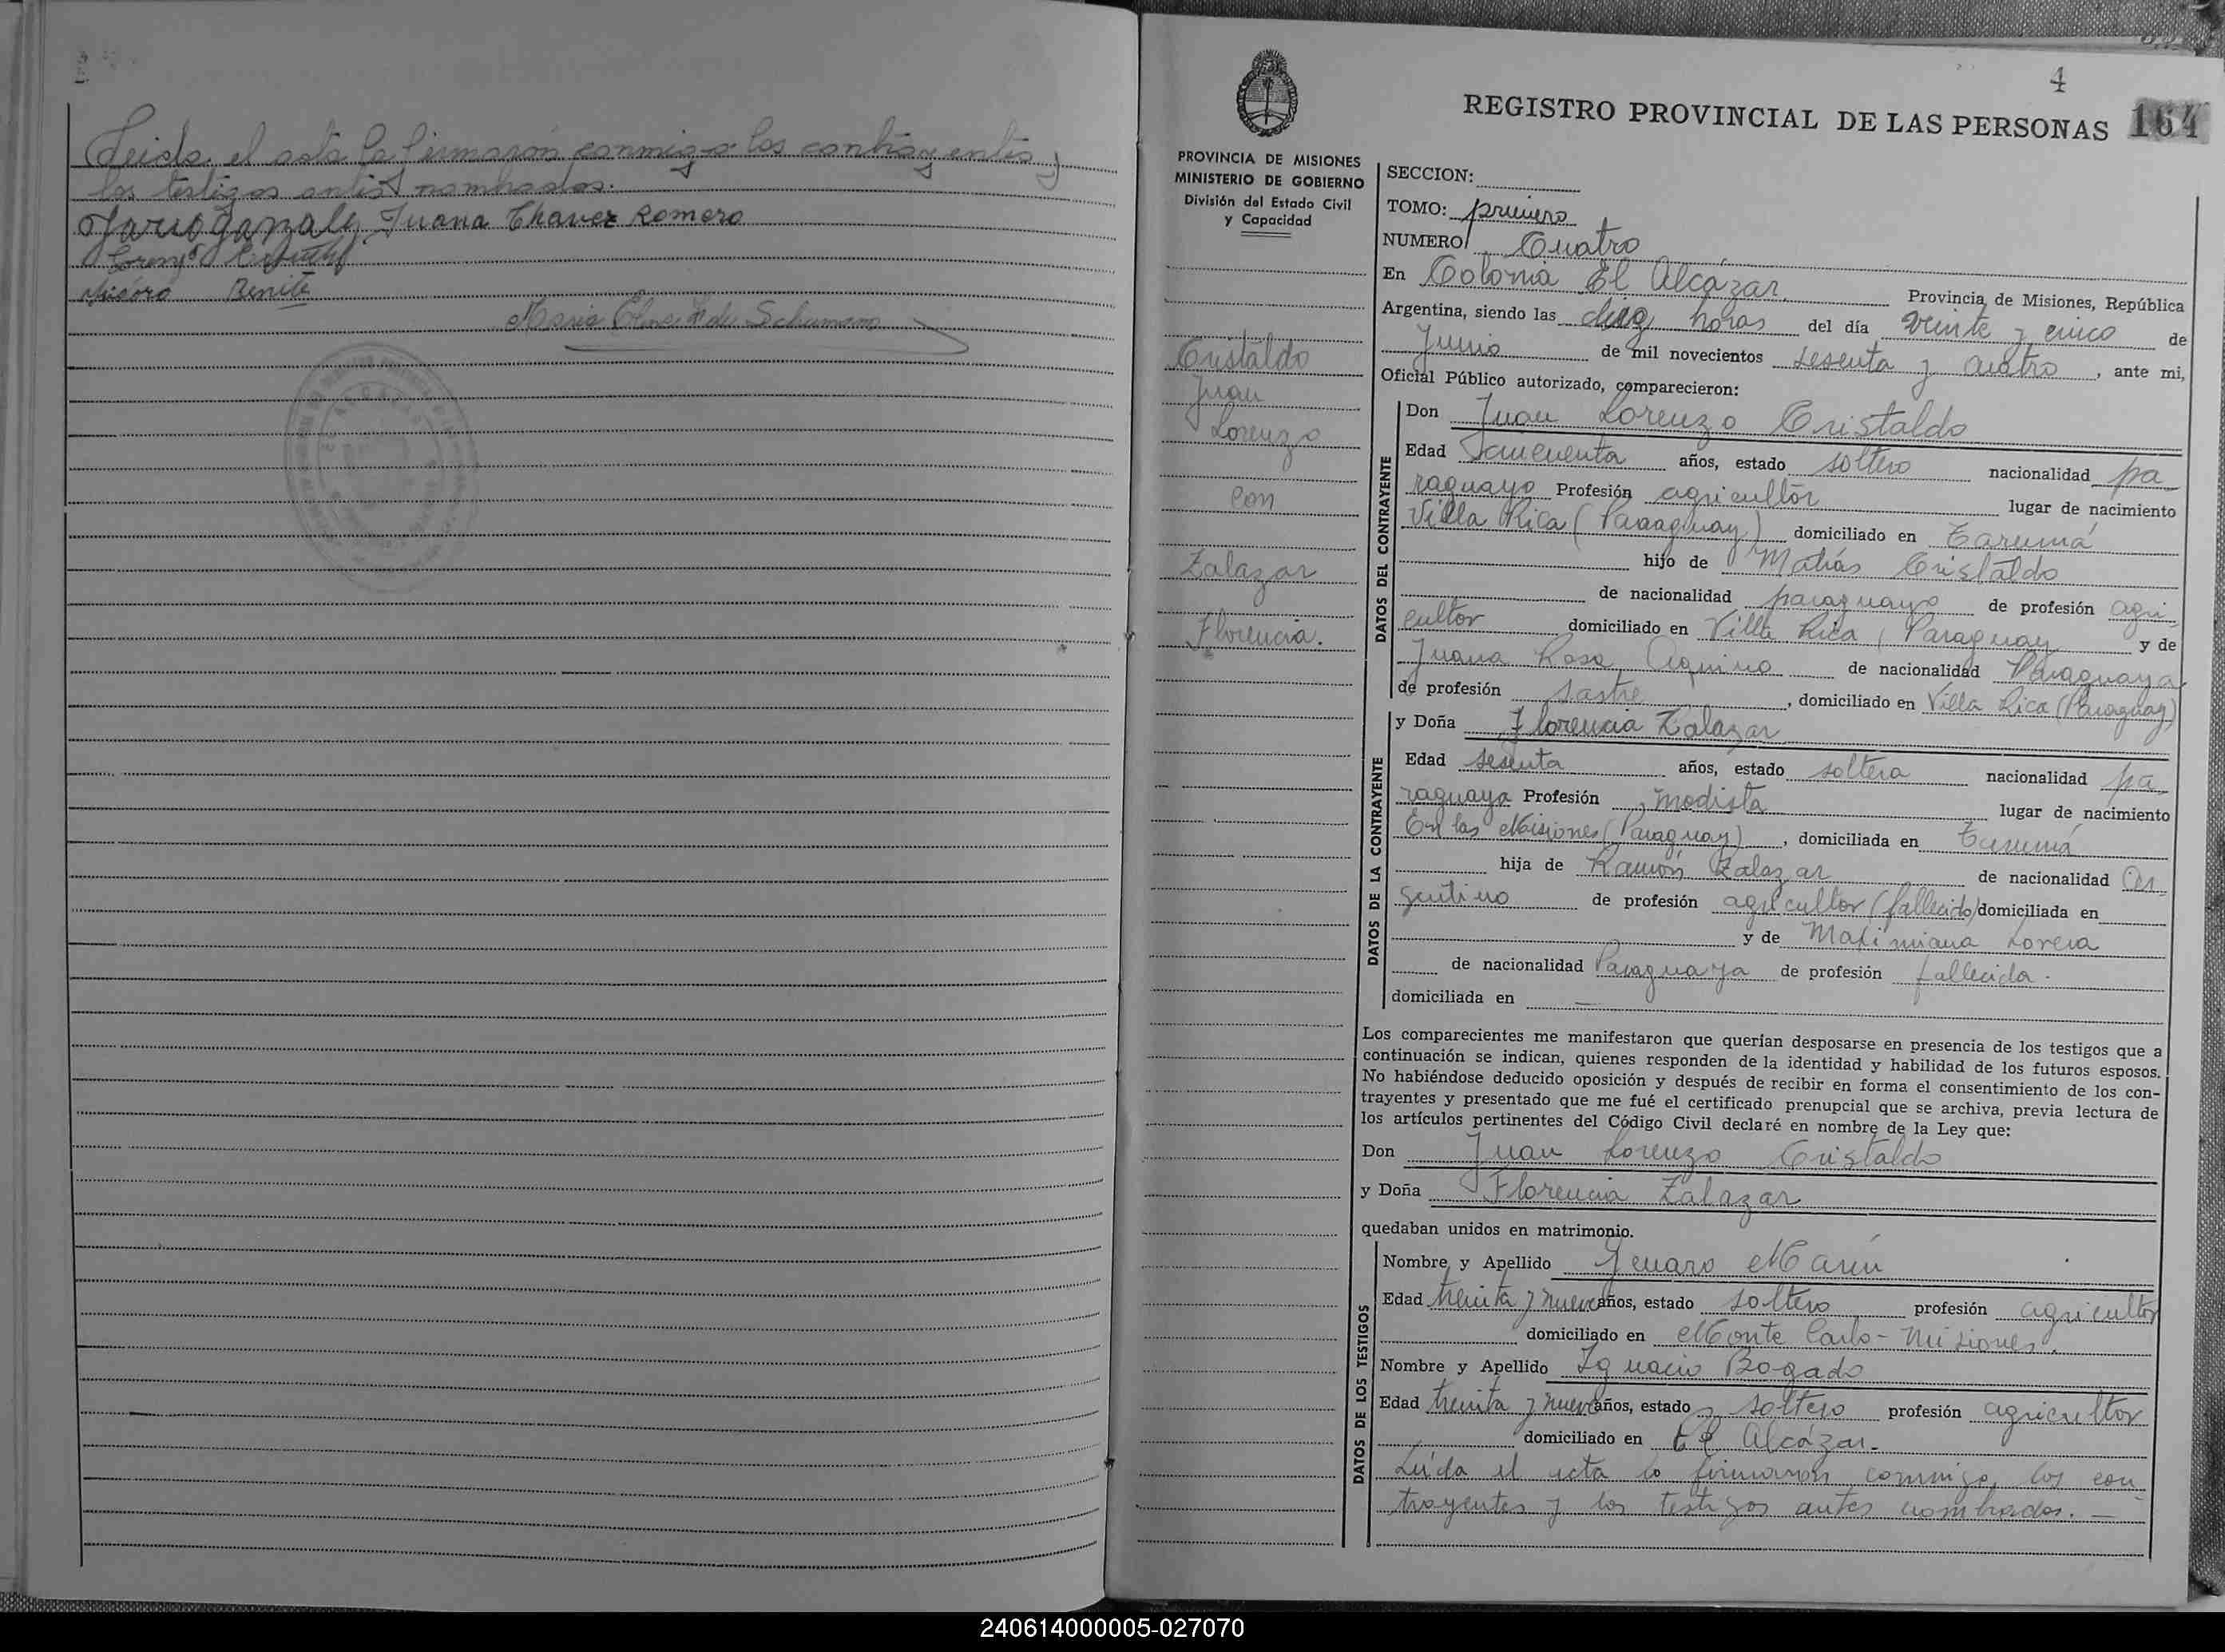 Leida el acta la firmaron conmigo los contrayentes y
los testigos antes nombrados.
Juana Chavez Romero
Benite
Maria de Schumann
4
REGISTRO PROVINCIAL DE LAS PERSONAS 164
PROVINCIA DE MISIONES
MINISTERIO DE GOBIERNO
División del Estado Civil
y Capacidad
Cristaldo
Juan
Lorenzo
con
Zalazar
Florencia.
SECCION:
TOMO: primero
NUMERO Cuatro
En Colonia El Alcázar Provincia de Misiones, República
Argentina, siendo las diez horas del día veinte y cinco de
Junio de mil novecientos sesenta y cuatro, ante mi,
Oficial Público autorizado, comparecieron:
DATOS DEL CONTRAYENTE
Don Juan Lorenzo Cristaldo
Edad cincuenta años, estado soltero nacionalidad pa
raguayo Profesión agricultor lugar de nacimiento
Villa Rica (Paraguay) domiciliado en Tarumá
hijo de Matías Cristaldo
de nacionalidad paraguayo de profesión agri
cultor domiciliado en Villa Rica, Paraguay y de
Juana Rosa Aquino de nacionalidad Paraguaya
de profesión sastre, domiciliado en Villa Rica (Paraguay)
DATOS DE LA CONTRAYENTE
y Doña Florencia Zalazar
Edad sesenta años, estado soltera nacionalidad pa
raguaya Profesión modista lugar de nacimiento
En las Misiones (Paraguay), domiciliada en Tarumá
hija de Ramón Zalazar de nacionalidad Ar
gentino de profesión agricultor (fallecido) domiciliada en
y de Maximiana
de nacionalidad Paraguaya de profesión fallecida.
domiciliada en —
Los comparecientes me manifestaron que querían desposarse en presencia de los testigos que a
continuación se indican, quienes responden de la identidad y habilidad de los futuros esposos.
No habiéndose deducido oposición y después de recibir en forma el consentimiento de los con-
trayentes y presentado que me fué el certificado prenupcial que se archiva, previa lectura de
los artículos pertinentes del Código Civil declaré en nombre de la Ley que:
Don Juan Lorenzo Cristaldo
y Doña Florencia Zalazar
quedaban unidos en matrimonio.
DATOS DE LOS TESTIGOS
Nombre y Apellido Genaro Marin
Edad treinta y nueve años, estado soltero profesión agricultor
domiciliado en Monte Carlo - Misiones.
Nombre y Apellido Ignacio Bogado
Edad treinta y nueve años, estado soltero profesión agricultor
domiciliado en El Alcázar.
Leída el acta lo firmaron conmigo los con
trayentes y los testigos antes nombrados. —
240614000005-027070